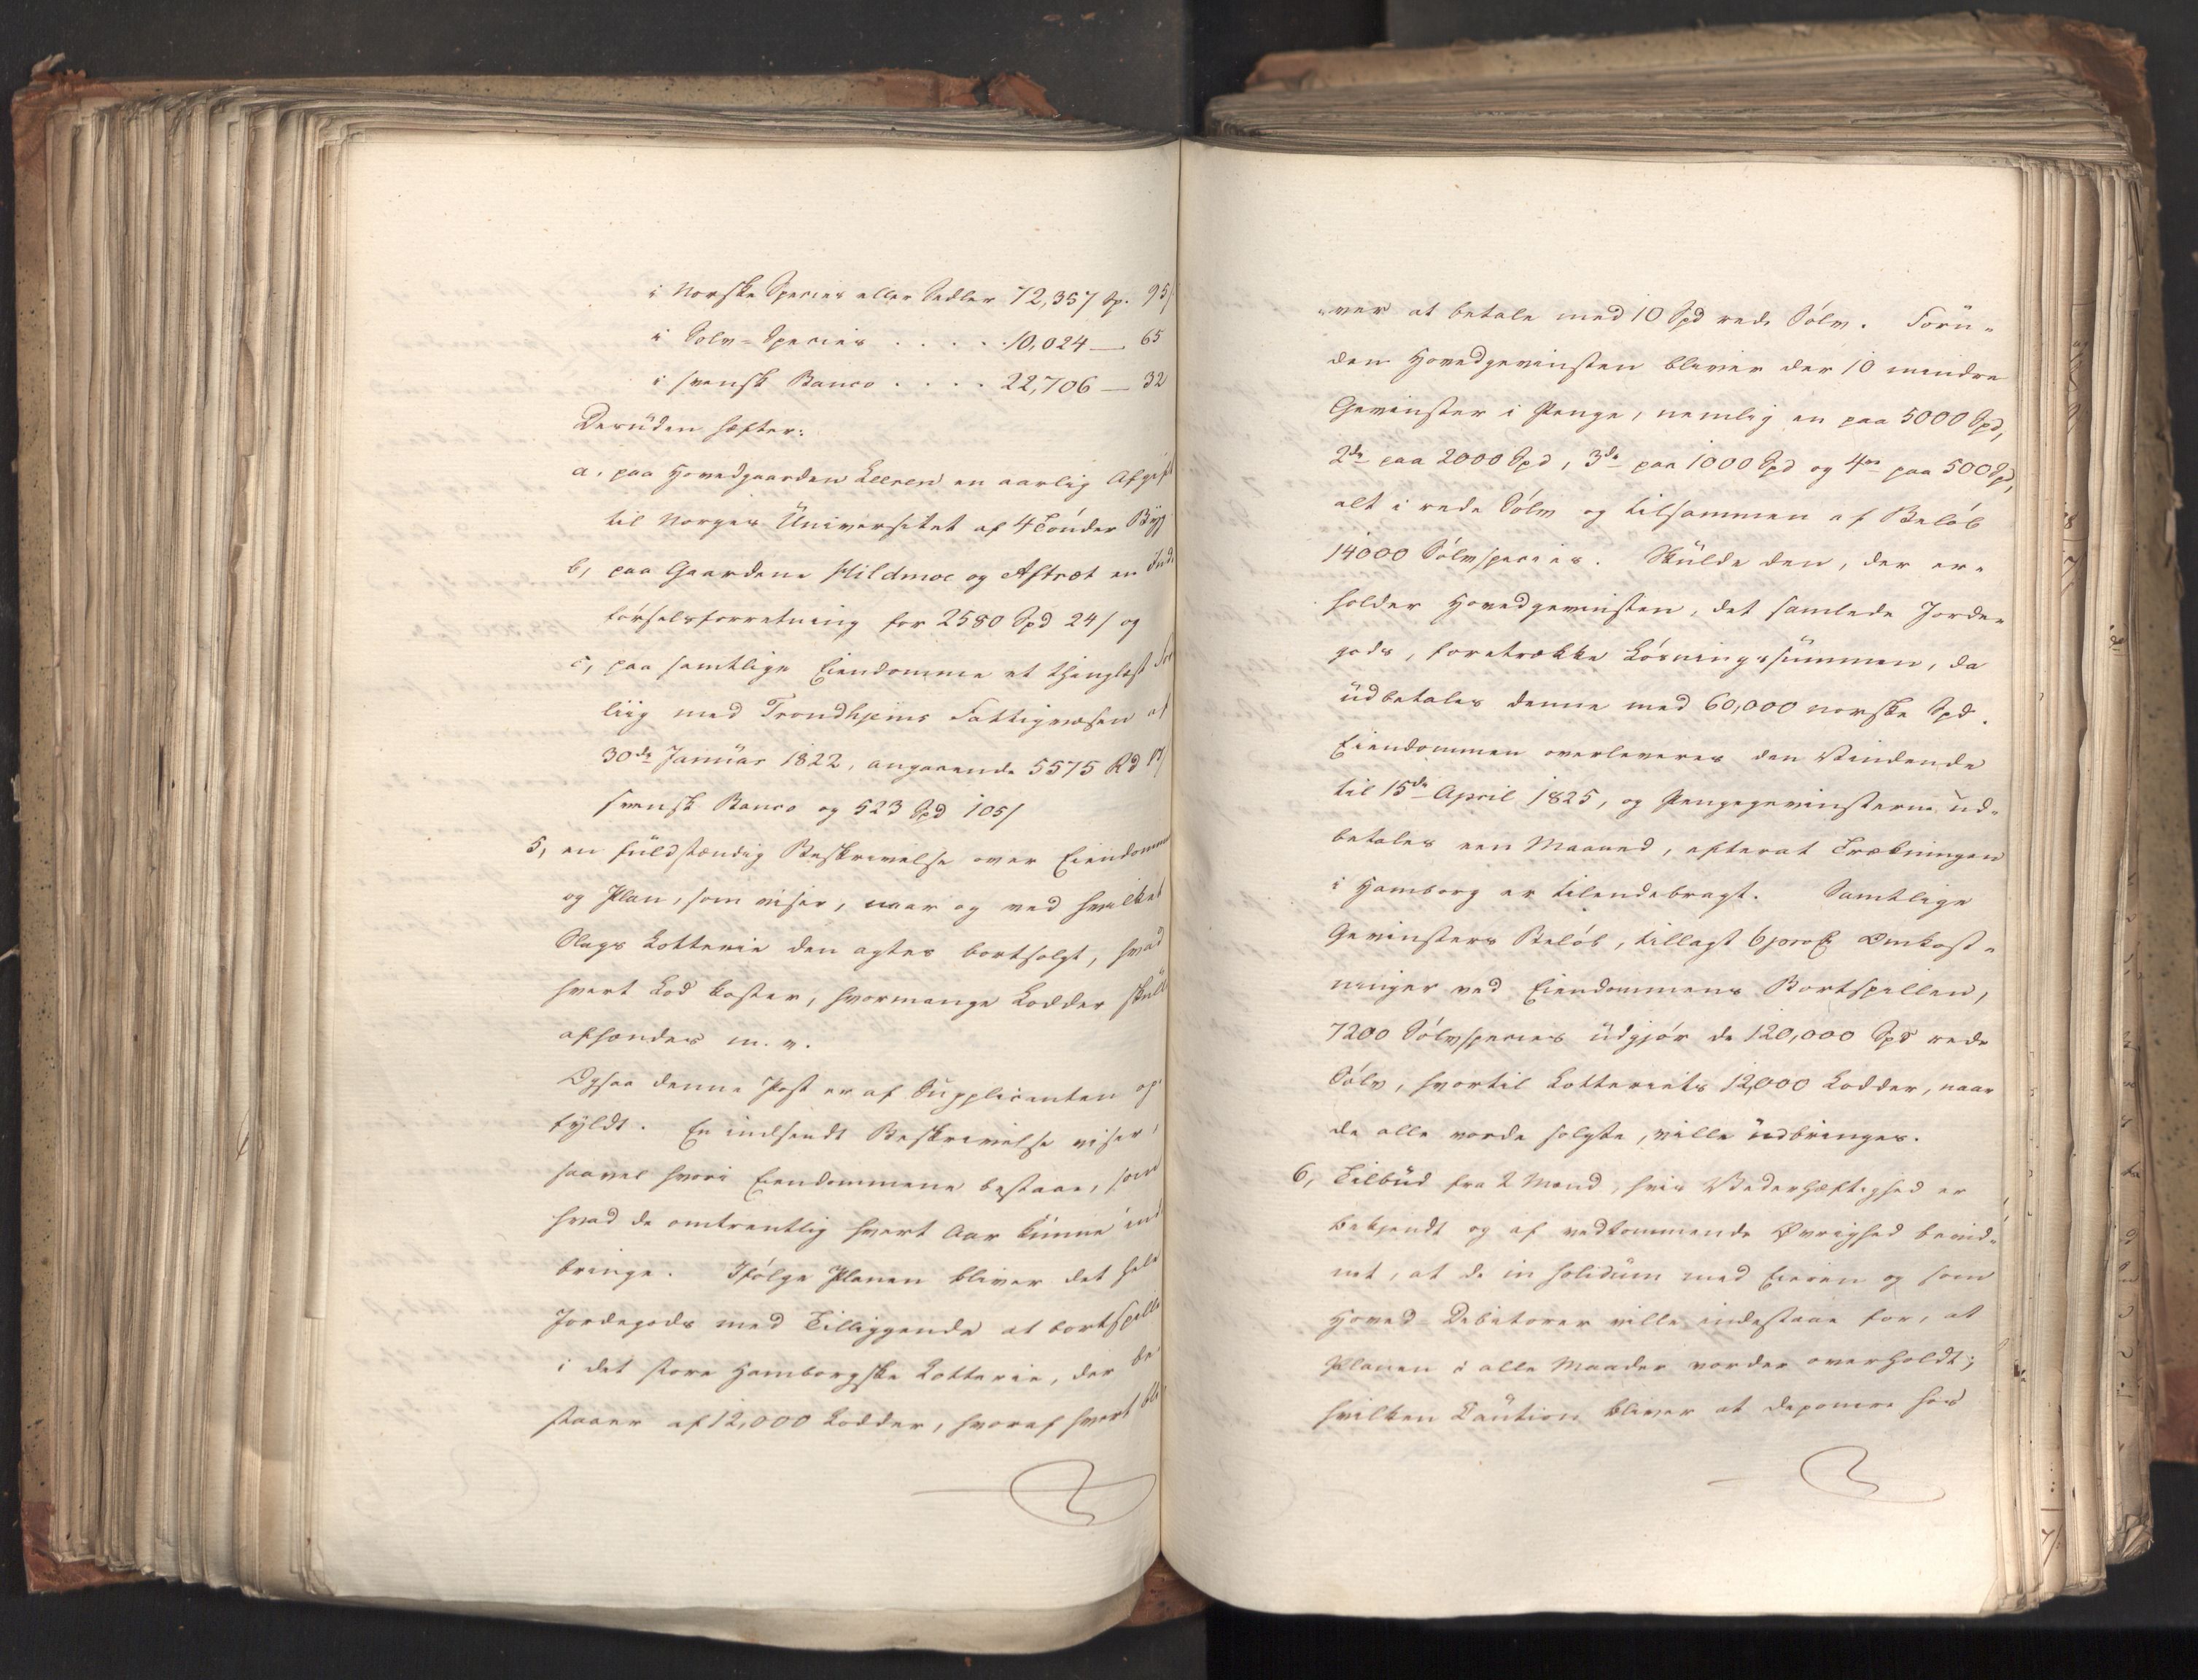 i Norske Species eller Sedler 72,357 Sp. 95/
i Sølv-Species . . . . . 10,024 — 65
i svensk Banco . . . . 22,706 — 32
Desuden hæfter:
a, paa Hovedgaarden Leeren en aarlig Afgift
til Norges Universitet af 4 Tønder Byg
b, paa Gaardene Hildmoe og Aftræt en Ind-
førselsforretning for 2580 Spd 24/ og
c, paa samtlige Eiendomme et thinglæst For
liig med Trondhjems Fattigvæsen af
30de Januar 1822, angaaende 5575 Rd
svensk Banco og 523 Spd 105/
5, en fuldstændig Beskrivelse over Eiendomme
og Plan, som viser, naar og ved hvilket
Slags Lotterie den agtes bortsolgt, hvad
hvert Lod koster, hvormange Lodder skulle
afhændes m. v.
Ogsaa denne Post er af Supplicanten op-
fyldt. En indsendt Beskrivelse viser,
saavel hvori Eiendommene bestaae, som
hvad de omtrentlig hvert Aar kunne ind-
bringe. Ifølge Planen bliver det hele
Jordegods med Tilliggende at bortspille
i det store Hamborgske Lotterie, der be-
staaer af 12,000 Lodder, hvoraf hvert bli-
-ver at betale med 10 Spd rede Sølv. Foru-
den Hovedgevinsten bliver der 10 mindre
Gevinster i Penge, nemlig en paa 5000 Spd,
2de paa 2000 Spd, 3de paa 1000 Spd og 4re paa 500 Spd,
alt i rede Sølv og tilsammen af Beløb
14000 Sølvspecies. Skulde den, der er-
holder Hovedgevinsten, det samlede Jorde-
gods, foretrække Løsningssummen, da
udbetales denne med 60,000 norske Spd.
Eiendommen overleveres den Vindende
til 15de April 1825, og Pengegevinsterne ud-
betales een Maaned, efterat Trækningen
i Hamborg er tilendebragt. Samtlige
Gevinsters Beløb, tillagt 6 proC Omkost-
ninger ved Eiendommens Bortspillen,
7200 Sølvspecies udgjør de 120,000 Spd rede
Sølv, hvortil Lotteriets 12,000 Lodder, naar
de alle vorde solgte, ville udbringes.
6, Tilbud fra 2 Mænd, hvis Vederhæftighed er
bekjendt og af vedkommende Øvrighed bevid-
net, at de in solidum med Eieren og som
Hoved Debitorer ville indestaae for, at
Planen i alle Maader vorder overholdt;
hvilken Caution bliver at deponere hos